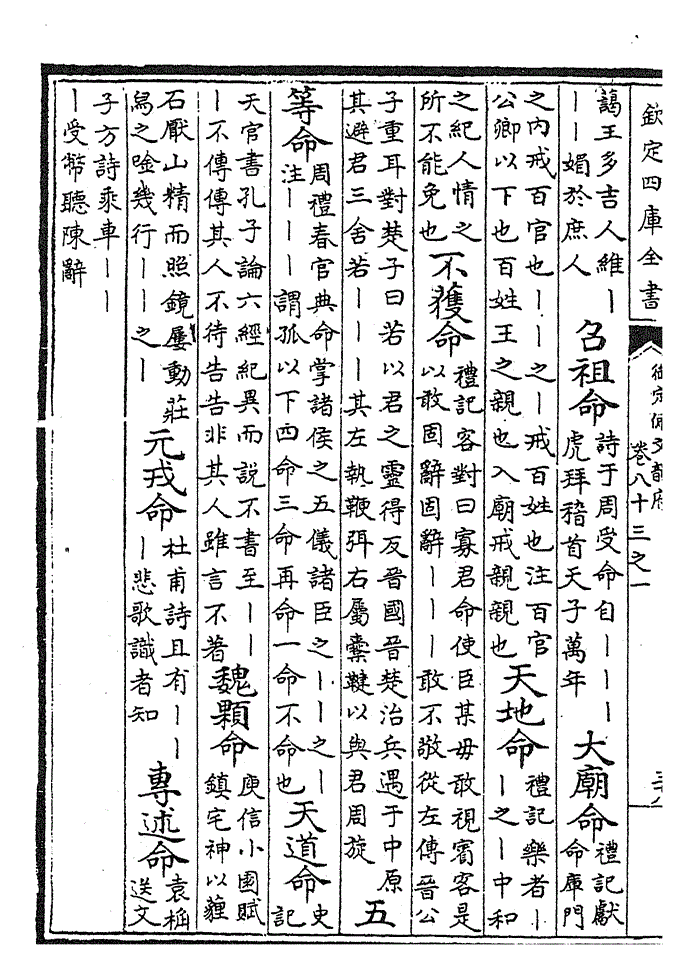 欽定四庫全書
御定佩文韻府
卷八十三之一
藹王多吉人維丨
丨丨媚於庶人
召祖命
詩于周受命自丨丨丨
虎拜稽首天子萬年
大廟命
禮記獻
命庫門
之內戒百官也丨丨之丨戒百姓也注百官
公卿以下也百姓王之親也入廟戒親親也
天地命
禮記樂者丨
丨之丨中和
之紀人情之
所不能免也
不獲命
禮記客對曰寡君命使臣某毋敢視賓客是
以敢固辭固辭丨丨丨敢不敬從左傳晉公
子重耳對楚子曰若以君之靈得反晉國晉楚治兵遇于中原
其避君三舍若丨丨丨其左執鞭弭右屬櫜鞬以與君周旋
五
等命
周禮春官典命掌諸侯之五儀諸臣之丨丨之丨
注丨丨丨謂孤以下四命三命再命一命不命也
天道命
史
記
天官書孔子論六經紀異而說不書至丨丨
丨不傳傳其人不待告告非其人雖言不著
魏顆命
庾信小園賦
鎮宅神以薶
石厭山精而照鏡屢動莊
舄之唫幾行丨丨之丨
元戎命
杜甫詩且有丨丨
丨悲歌識者知
專述命
袁桷
送文
子方詩乘車丨丨
丨受幣聽陳辭